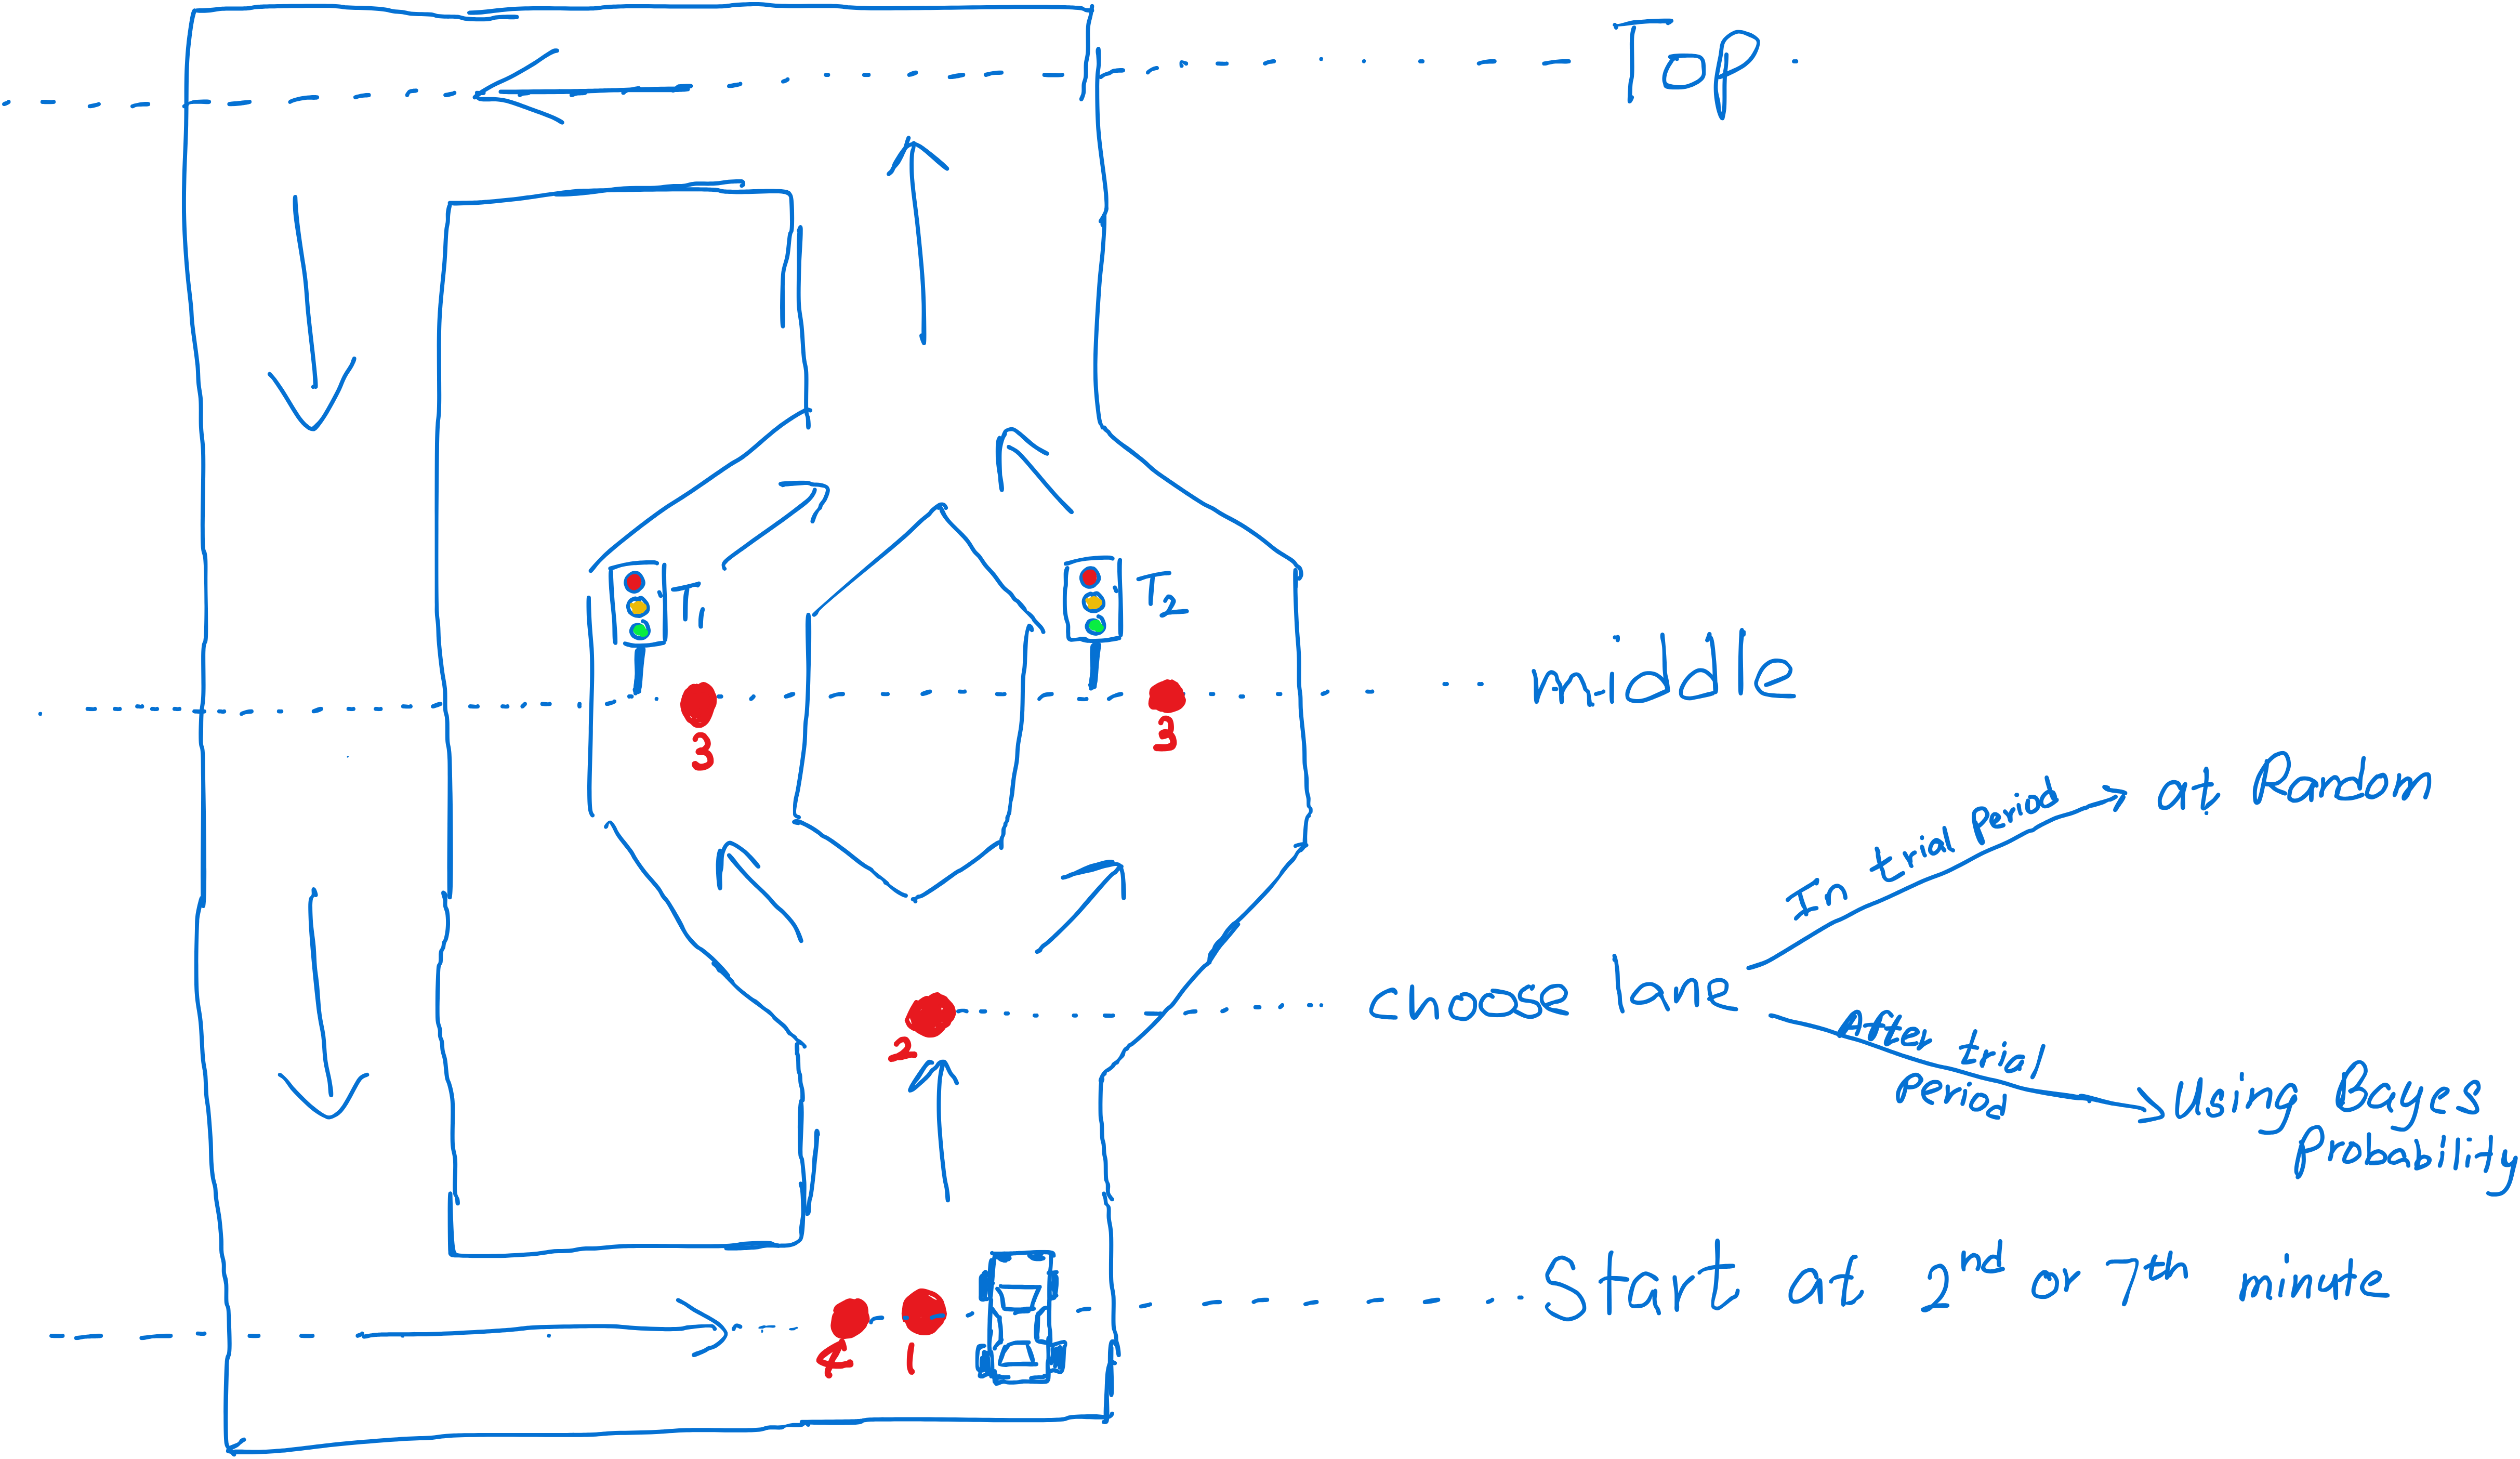 Top
T1
T2
middle
3
3
In trial Period
at Random
choose lane
2
After trial
Period
Using Bayes
Probability
Start at 2nd or 7th minute
4
1